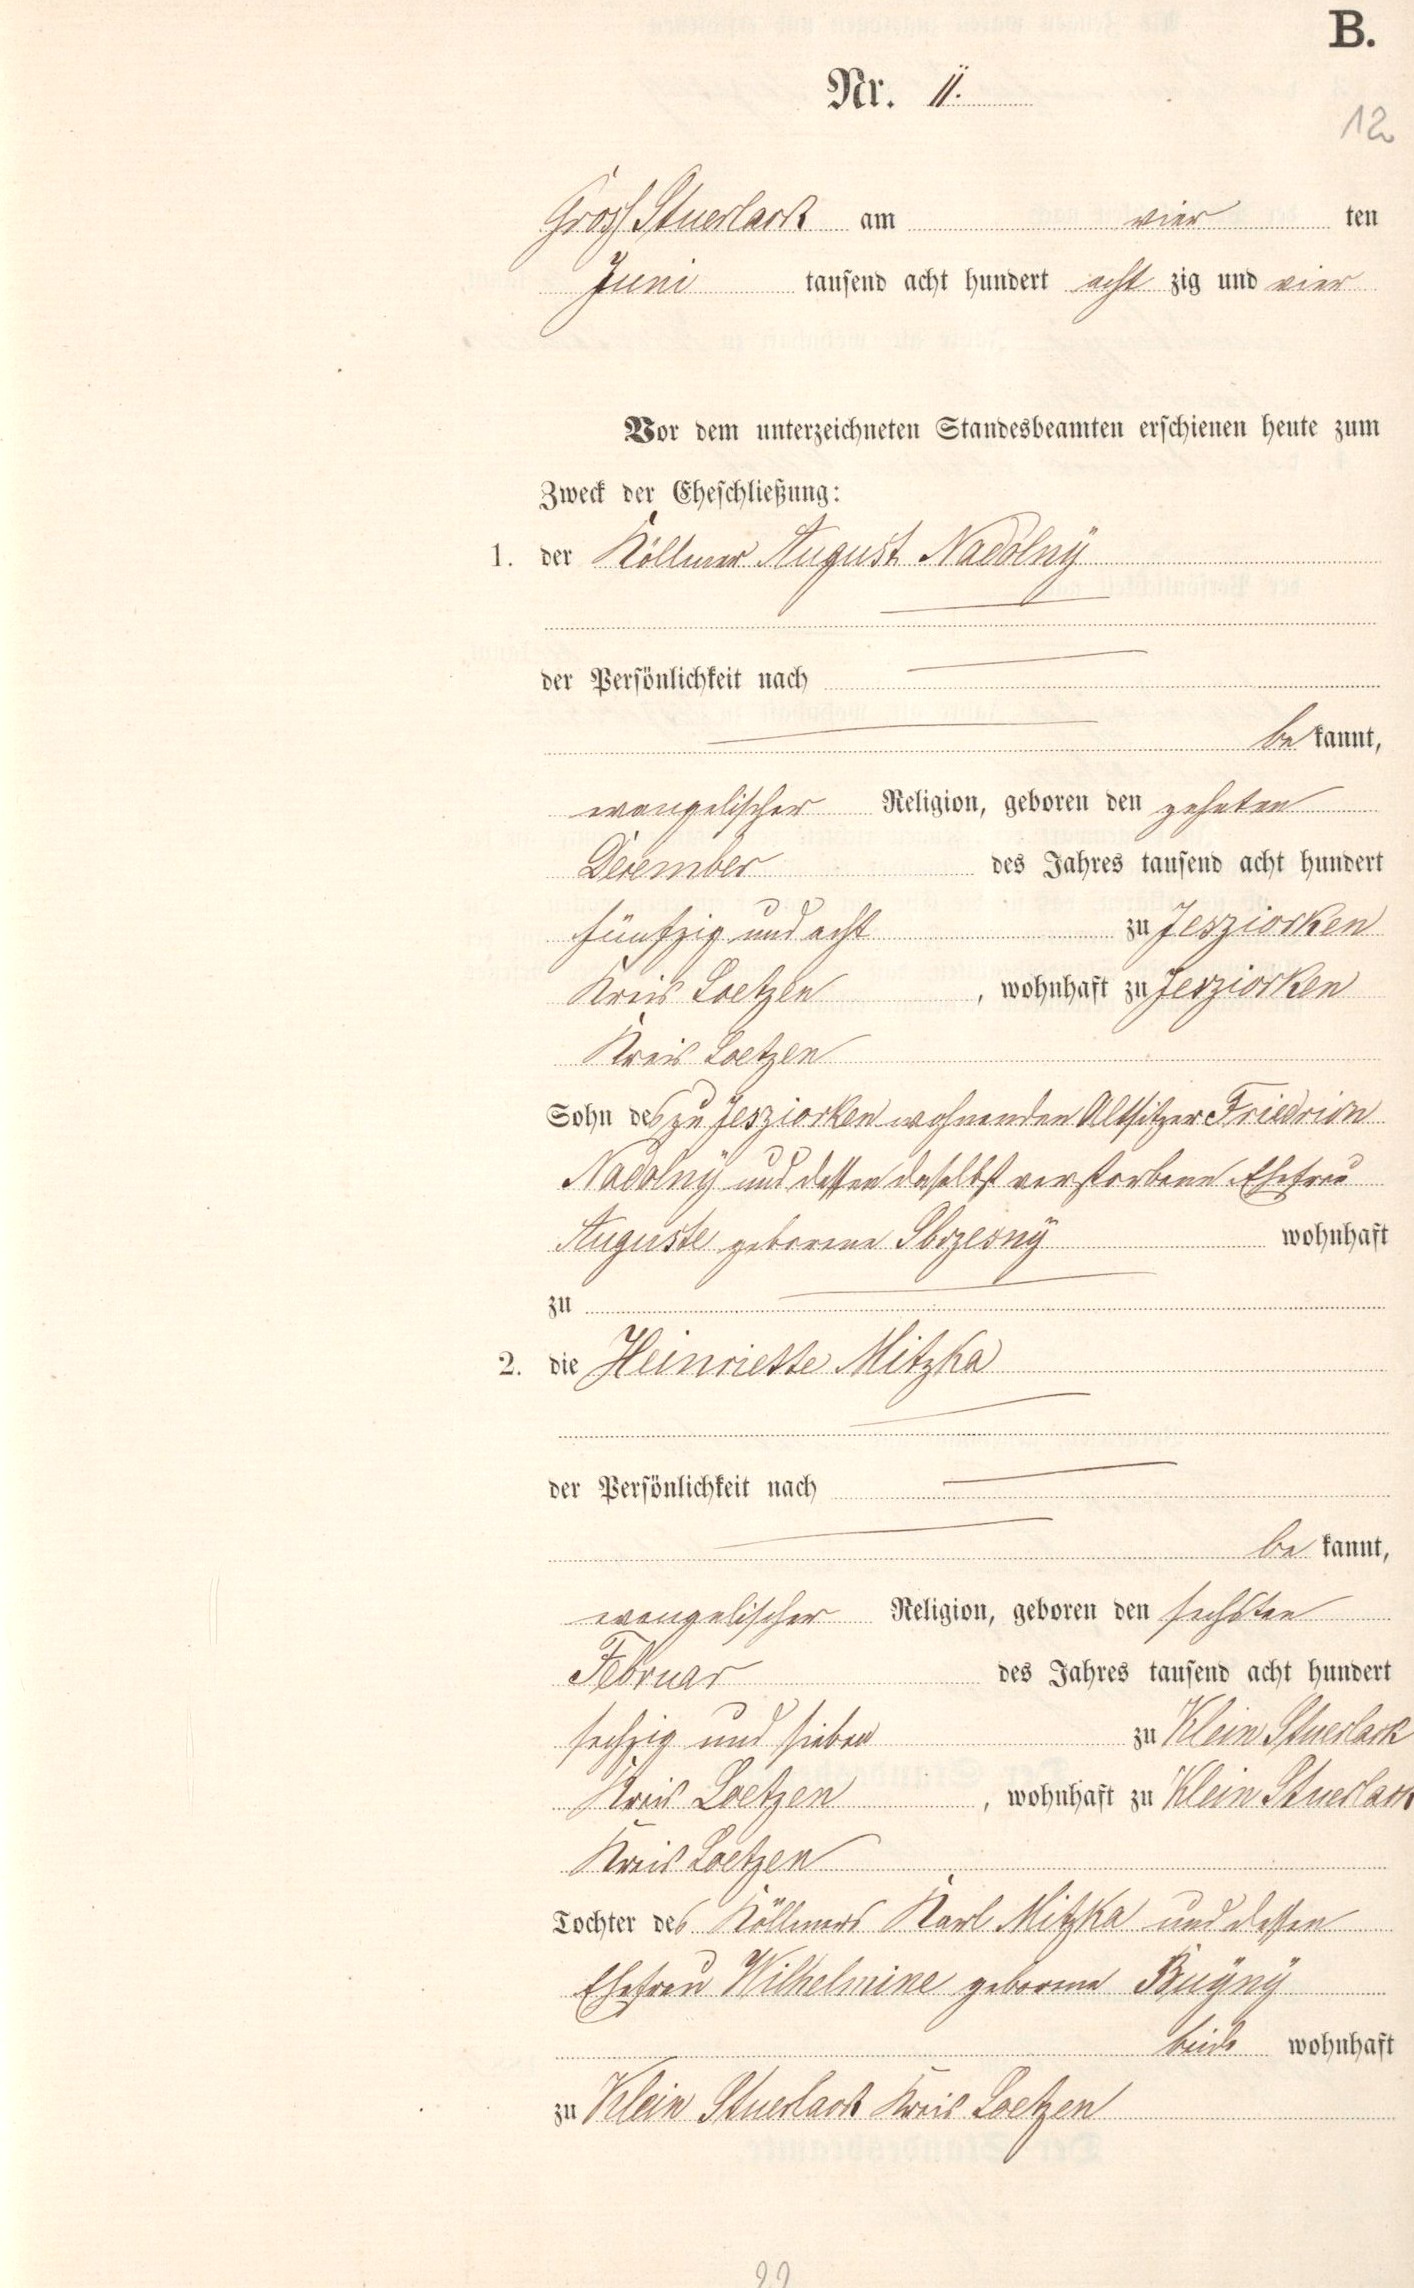 B.
Nr. 11.
12
Gross Stuerlack am vier ten
Juni tausend acht hundert acht zig und vier
Vor dem unterzeichneten Standesbeamten erschienen heute zum
Zweck der Eheschließung:
1. der Köllmer August Nadolny
der Persönlichkeit nach
be kannt,
evangelischer Religion, geboren den zehnten
December des Jahres tausend acht hundert
fünfzig und acht zu Jesziorken
Kreis Loetzen, wohnhaft zu Jesziorken
Kreis Loetzen
Sohn des zu Jesziorken wohnenden Altsitzer Friedrich
Nadolny und dessen daselbst verstorbene Ehefrau
Auguste geborene Sbrzesny wohnhaft
zu
2. die Heinriette Mitzka
der Persönlichkeit nach
be kannt,
evangelischer Religion, geboren den sechsten
Februar des Jahres tausend acht hundert
sechzig und sieben zu Klein Stuerlack
Kreis Loetzen, wohnhaft zu Klein Stuerlack
Kreis Loetzen
Tochter des Köllmers Karl Mitzka und dessen
Ehefrau Wilhelmine geborene Buÿnÿ
beide wohnhaft
zu Klein Stuerlack Kreis Loetzen